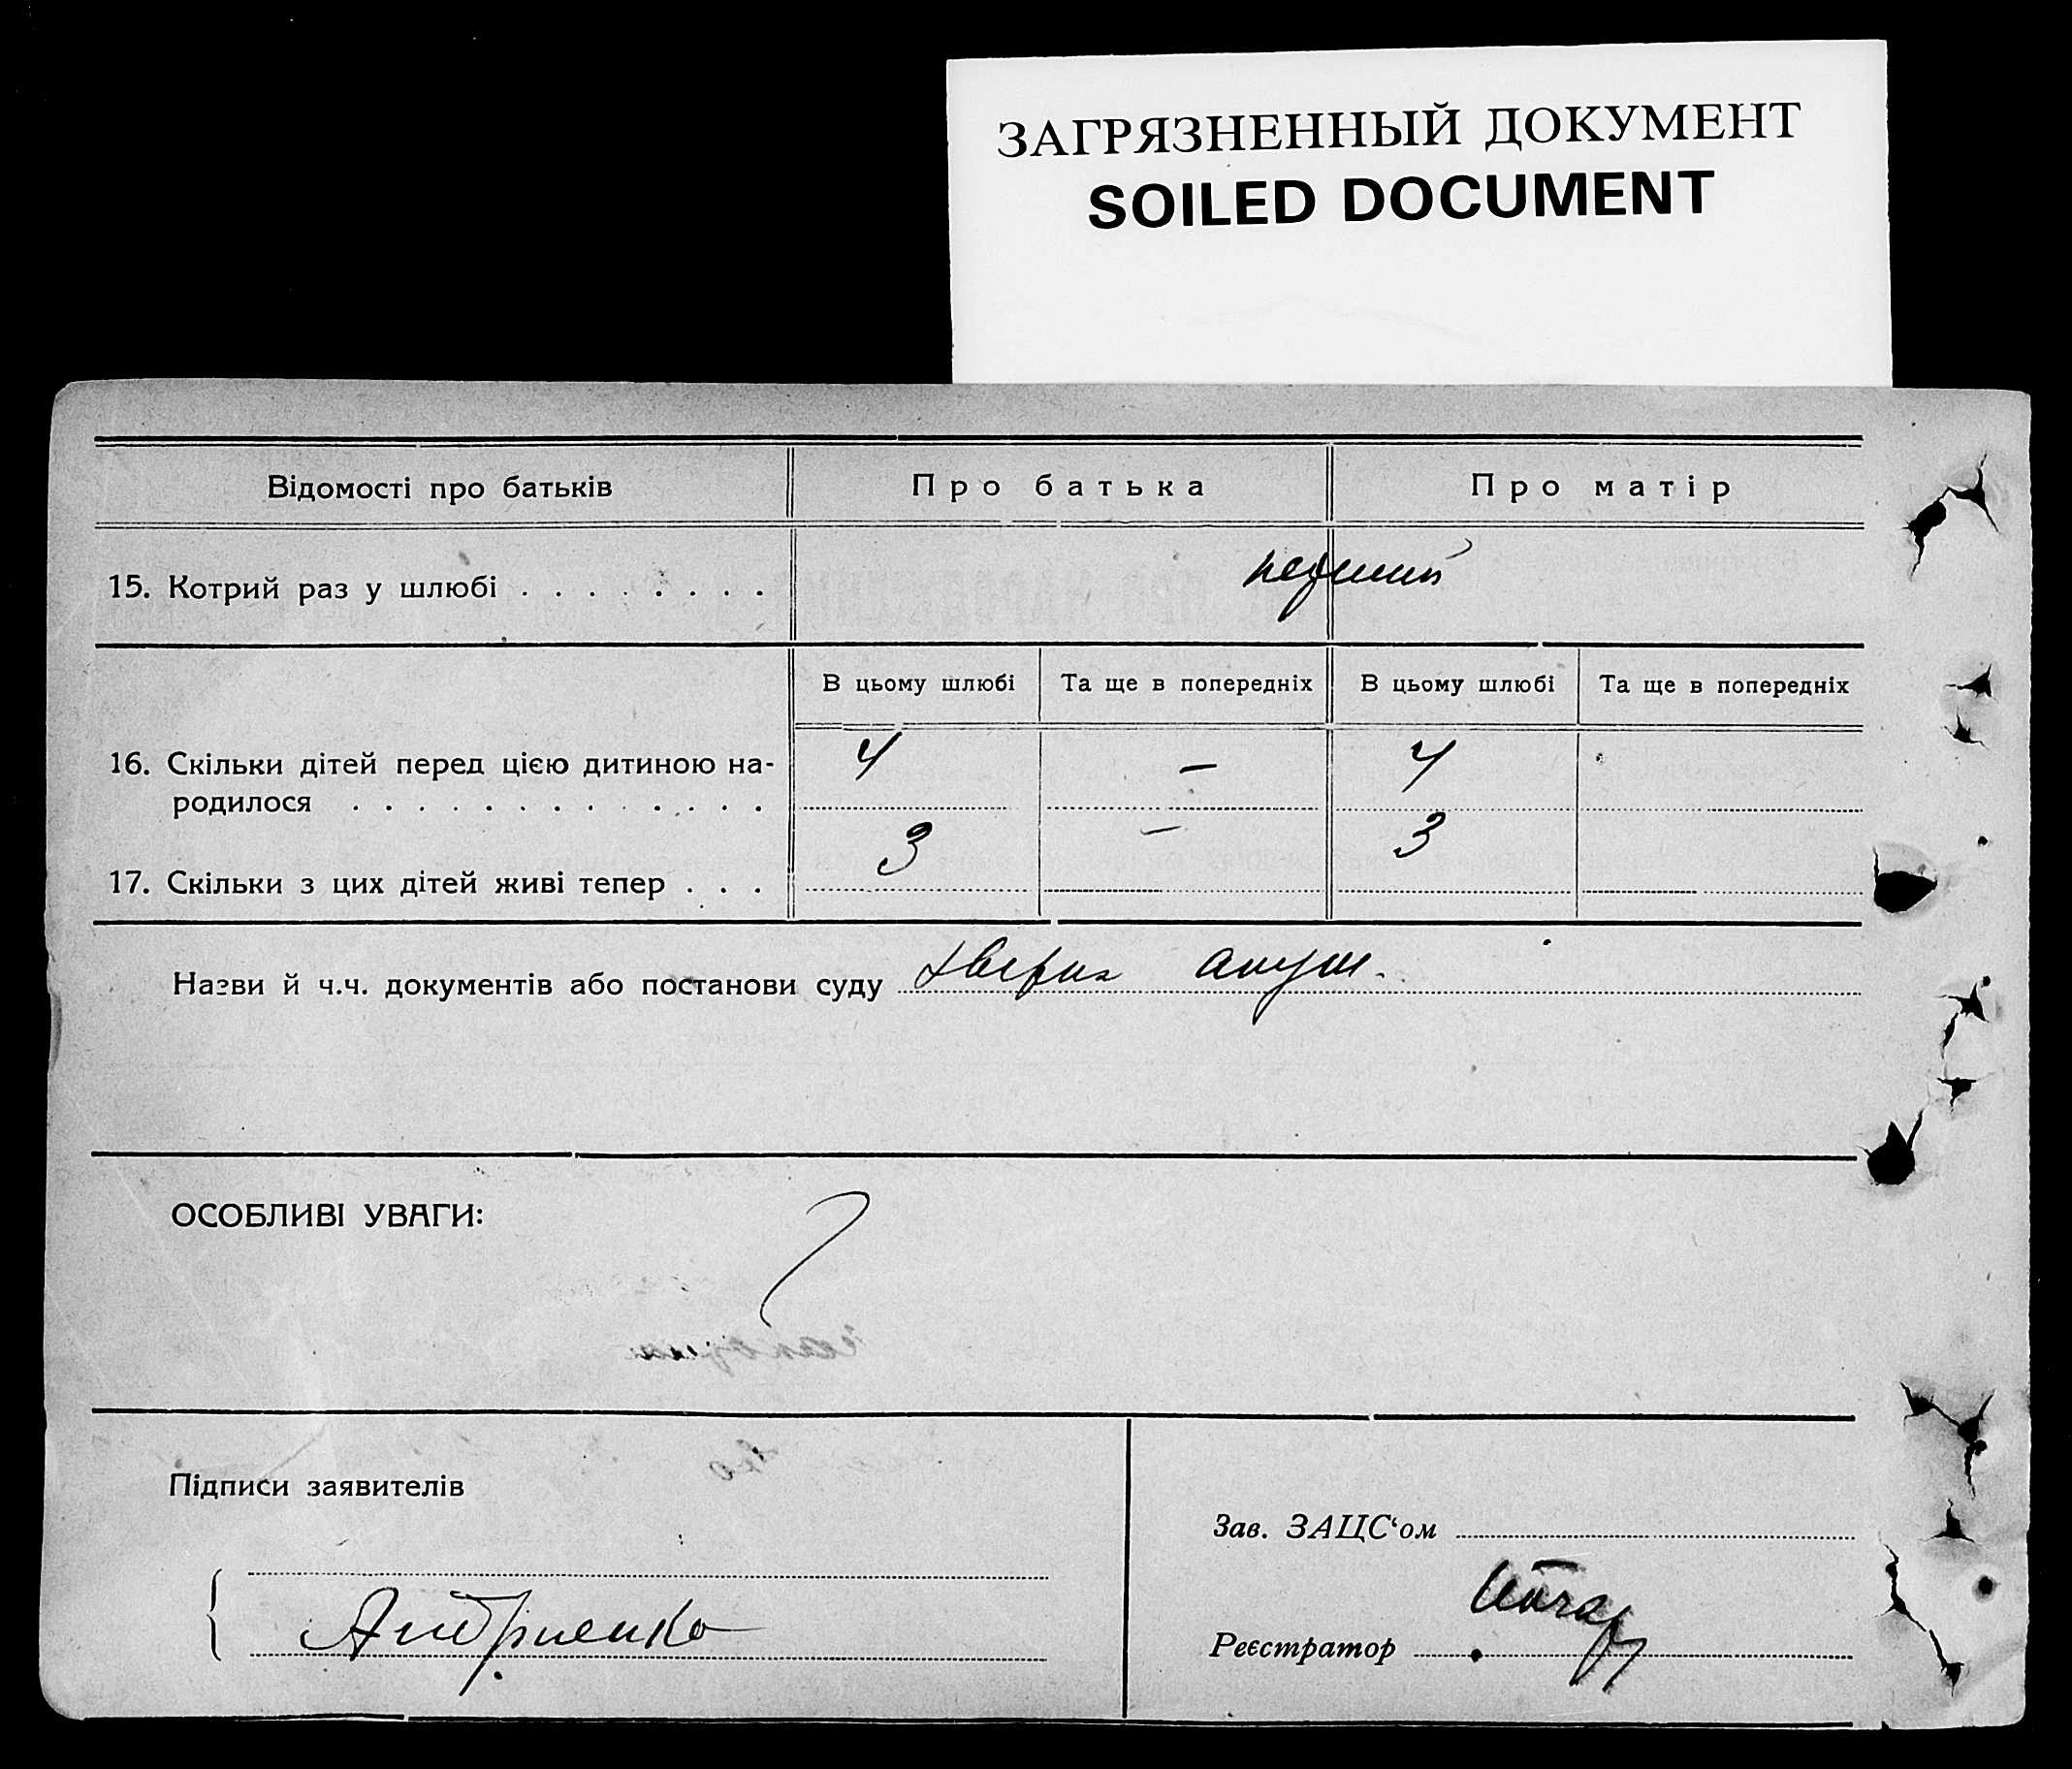 ЗАГРЯЗНЕННЫЙ ДОКУМЕНТ
SOILED DOCUMENT
Відомості про батьків Про батька Про матір
15. Котрий раз у шлюбі . . . . . . . . перший
В цьому шлюбі Та ще в попередніх В цьому шлюбі Та ще в попередніх
16. Скільки дітей перед цією дитиною на- 4 — 4
родилося . . . . . . . . . . . . .
17. Скільки з цих дітей живі тепер . . . 3 — 3
Назви й ч.ч. документів або постанови суду
ОСОБЛИВІ УВАГИ:
Підписи заявителів
Зав. ЗАЦС‘ом
Андриенко
Реєстратор